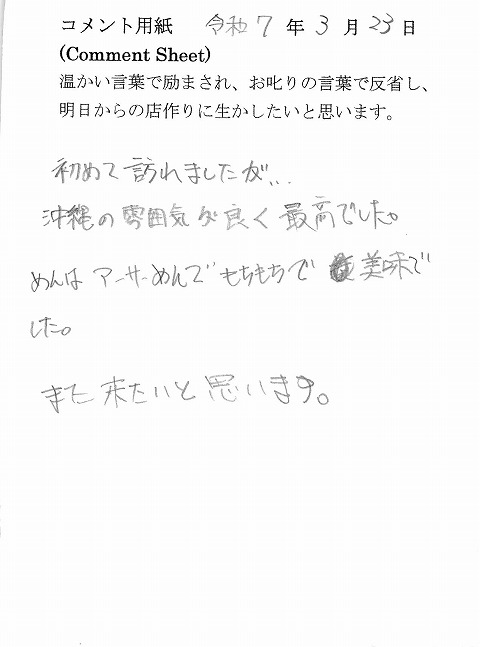 コメント用紙 令和 7 年 3 月 23 日
(Comment Sheet)
温かい言葉で励まされ、お叱りの言葉で反省し、
明日からの店作りに生かしたいと思います。
初めて訪れましたが...
沖縄の雰囲気が良く最高でした。
めんはアーサーめんでもちもちで美味で
した。
また来たいと思います。